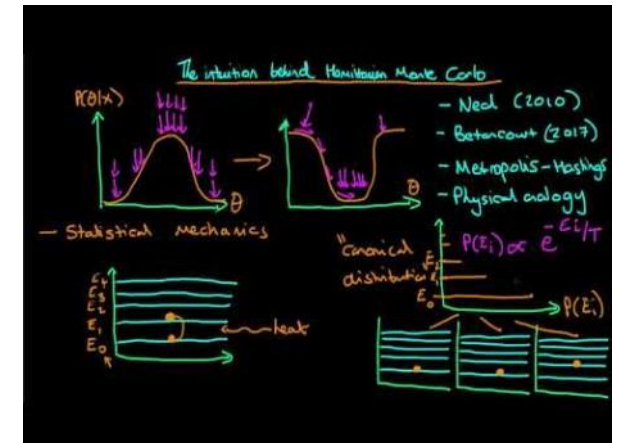 The intuition behind Hamiltonian Monte Carlo
P(θ|x)
θ
θ
- Neal (2010)
- Betancourt (2017)
- Metropolis-Hastings
- Physical analogy
- Statistical Mechanics
"canonical
distribution
P(Ei) ∝ e^-Ei/T
E0
P(Ei)
E4
E3
E2
E1
E0
heat